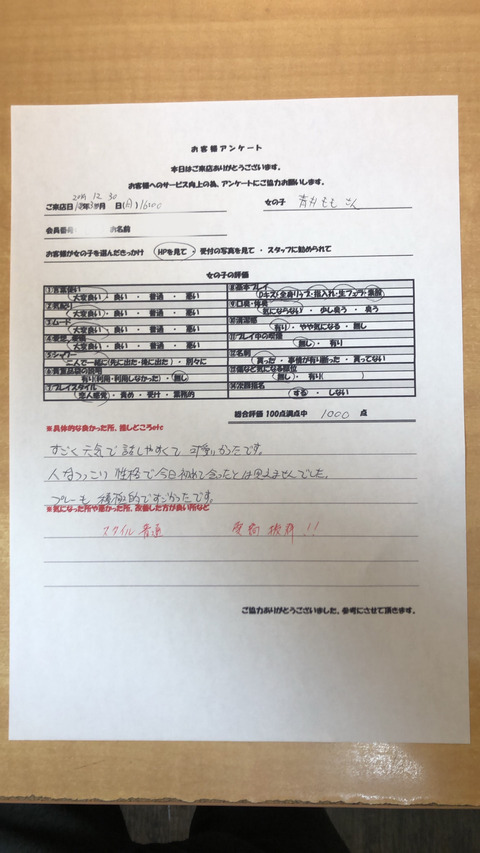 お客様アンケート
本日はご来店ありがとうございます。
お客様へのサービス向上の為、アンケートにご協力お願いします。
ご来店日 年 12月 30日(月)16:00 女の子 さん
会員番号 お名前
お客様が女の子を選んだきっかけ HPを見て ・ 受付の写真を見て ・ スタッフに勧められて
女の子の評価
①言葉使い
大変良い ・ 良い ・ 普通 ・ 悪い
大変良い ・ 良い ・ 普通 ・ 悪い
③ムード
大変良い ・ 良い ・ 普通 ・ 悪い
大変良い ・ 良い ・ 普通 ・ 悪い
⑤シャワー
二人で一緒に(先に出た・後に出た) ・ 別々に
有り(利用・利用しなかった) ・ 無し
⑦プレイスタイル
恋人感覚 ・ 責め ・ 受け ・ 業務的
⑧基本プレイ
Dキス・全身リップ・指入れ・生フェラ・素股
⑨口臭・体臭
気にならない ・ 少し臭う ・ 臭う
⑩清潔感
有り ・ やや気になる ・ 無し
⑪プレイ中の
無し ・ 有り
⑫名刺
貰った ・ 事情が有り断った ・ 貰ってない
無し ・ 有り( )
⑭次回指名
する ・ しない
総合評価 100点満点中 1000 点
※具体的な良かった所、推しどころetc
すごく元気で話しやすくて可愛いかったです。
人なつっこい性格で今日初めて会ったとは思えませんでした。
プレーも積極的ですごかったです。
※気になった所や悪かった所、改善した方が良い所など
スタイル普通 愛嬌抜群!!
ご協力ありがとうございました、参考にさせて頂きます。